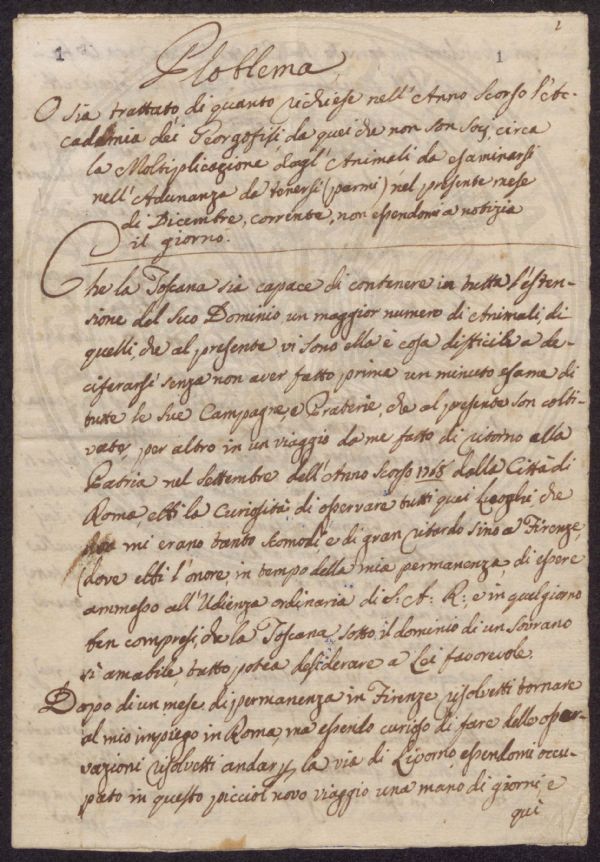 1
1
1
Ploblema
O sia trattato di quanto richiese nell' Anno Scorso l'Ac-
cademia dei Georgofisi da quei che non son Socj, circa
la Moltiplicazione dagl' Animali da esaminarsi
nell' Adunanza da tenersi (parmi) nel presente mese
di Dicembre, corrente, non essendomi a notizia
il giorno.
Che la Toscana sia capace di contenere in tutta l'esten-
sione del Suo Dominio un maggior numero di Animali, di
quelli, che al presente vi sono ella è cosa difficile a de-
ciferarsi senza non aver fatto prima un minuto esame di
tutte le Sue Campagne, e Praterie, che al presente son colti-
vate, per altro in un viaggio da me fatto di ritorno alla
Patria nel Settembre dell' Anno Scorso 1768 dalla Città di
Roma, ebbi la Curiosità di osservare tutti quei Luoghi che
mi erano tanto Comodi e di gran ritardo sino a Firenze,
(dove ebbi l'onore in tempo della mia permanenza, di essere
ammesso all' Udienza ordinaria di S: A: R:, e in quel giorno
ben compresi, che la Toscana sotto il dominio di un Sovrano
sì amabile, tutto potea desiderare a Lei favorevole.
Dopo di un mese di permanenza in Firenze risolvetti tornare
al mio impiego in Roma, ma essendo curioso di fare delle osser-
vazioni risolvetti andar p la via di Livorno, essendomi occu-
pato in questo picciol novo viaggio una mano di giorni, e
qui